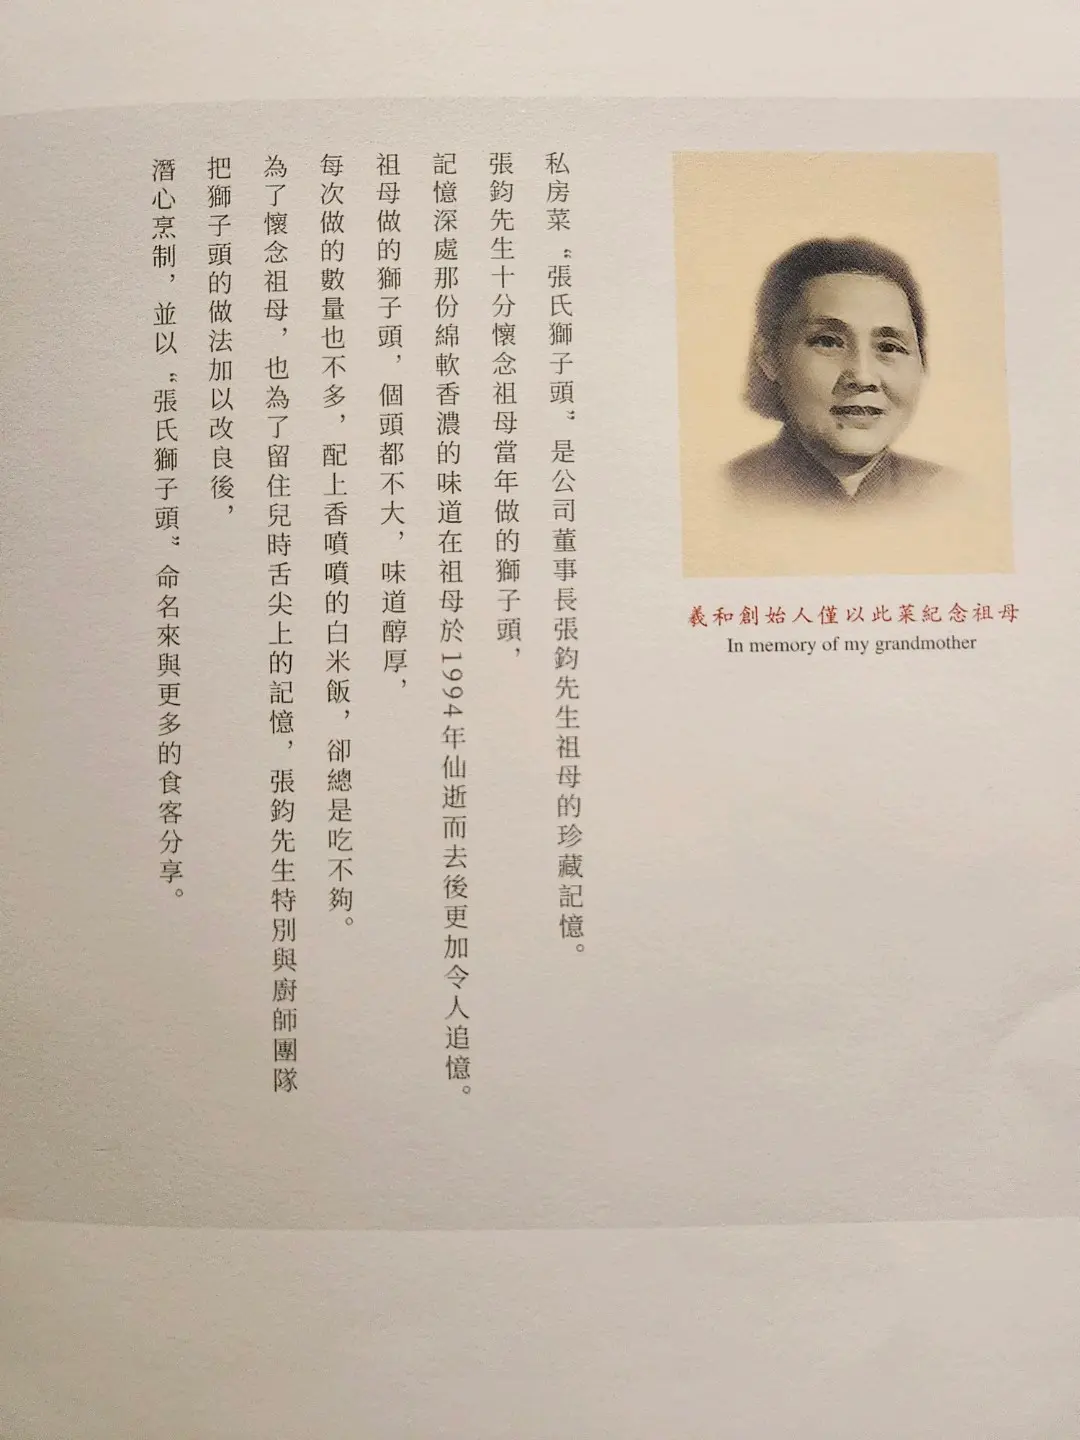 羲和創始人僅以此菜紀念祖母
In memory of my grandmother
私房菜“張氏獅子頭”是公司董事長張鈞先生祖母的珍藏記憶。
張鈞先生十分懷念祖母當年做的獅子頭，
記憶深處那份綿軟香濃的味道在祖母於1994年仙逝而去後更加令人追憶。
祖母做的獅子頭，個頭都不大，味道醇厚，
每次做的數量也不多，配上香噴噴的白米飯，卻總是吃不夠。
為了懷念祖母，也為了留住兒時舌尖上的記憶，張鈞先生特別與廚師團隊
把獅子頭的做法加以改良後，
潛心烹制，並以“張氏獅子頭”命名來與更多的食客分享。